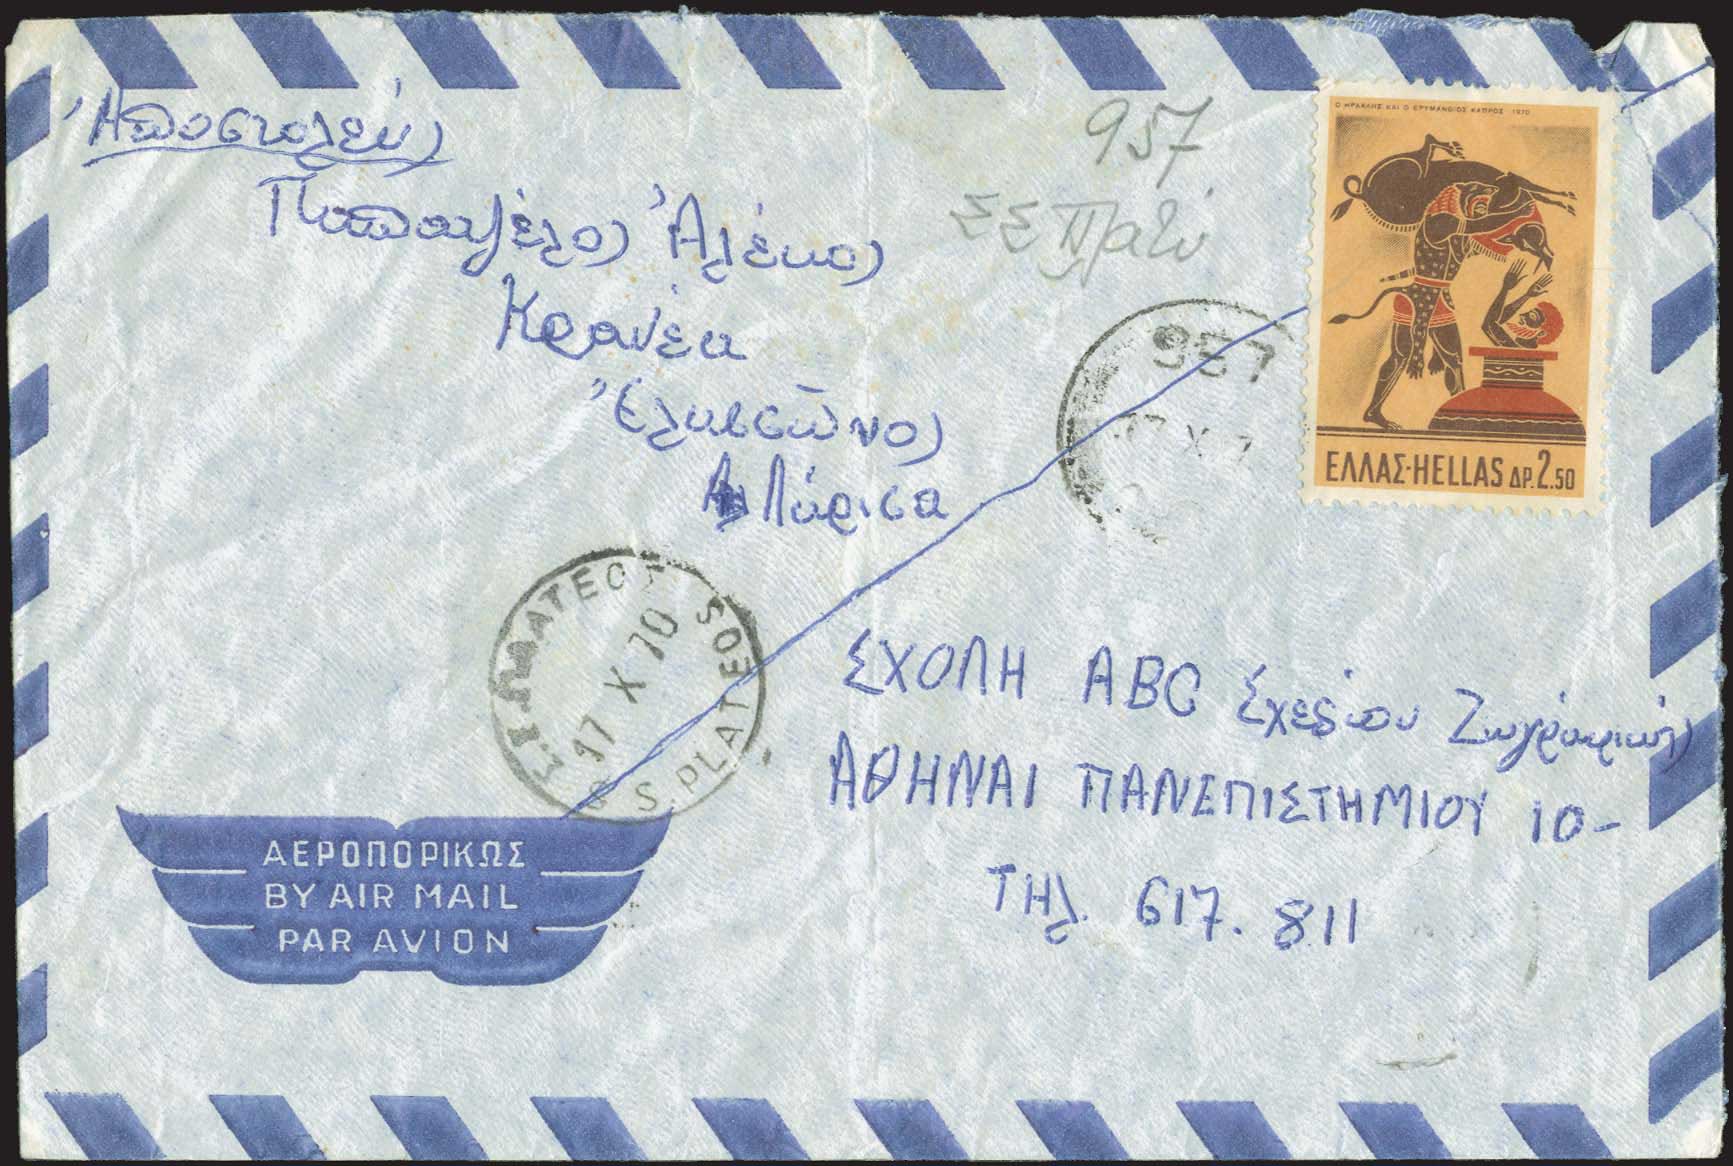 Ἀποστολεύς
Παπαγγέλος Ἀλέκος
Κρανέα
Ἐλασσῶνος
Λάρισα
957
ΣΣ Πλατύ
Ο ΗΡΑΚΛΗΣ ΚΑΙ Ο ΕΡΥΜΑΝΘΙΟΣ ΚΑΠΡΟΣ 1970
ΕΛΛΑΣ-HELLAS ΔΡ. 2.50
957
17 X 7
ΠΛΑΤΕΟΣ
17 X 70
S S. PLATEOS
ΣΧΟΛΗ ABC Σχεδίου Ζωγραφικῆς
ΑΘΗΝΑΙ ΠΑΝΕΠΙΣΤΗΜΙΟΥ 10-
ΤΗλ. 617. 811
ΑΕΡΟΠΟΡΙΚΩΣ
BY AIR MAIL
PAR AVION